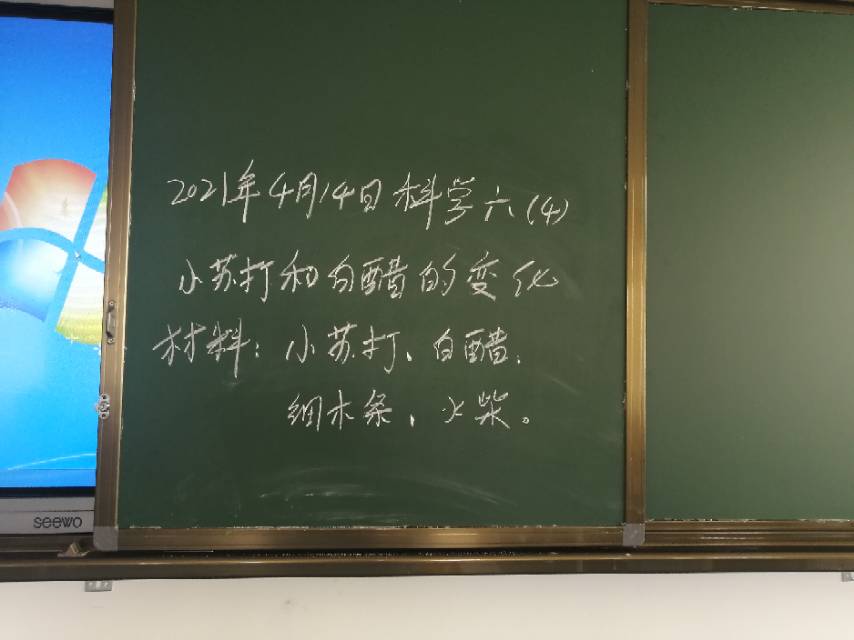 2021年4月14日科学六(4)
小苏打和白醋的变化
材料：小苏打、白醋、
细木条、火柴。
seewo